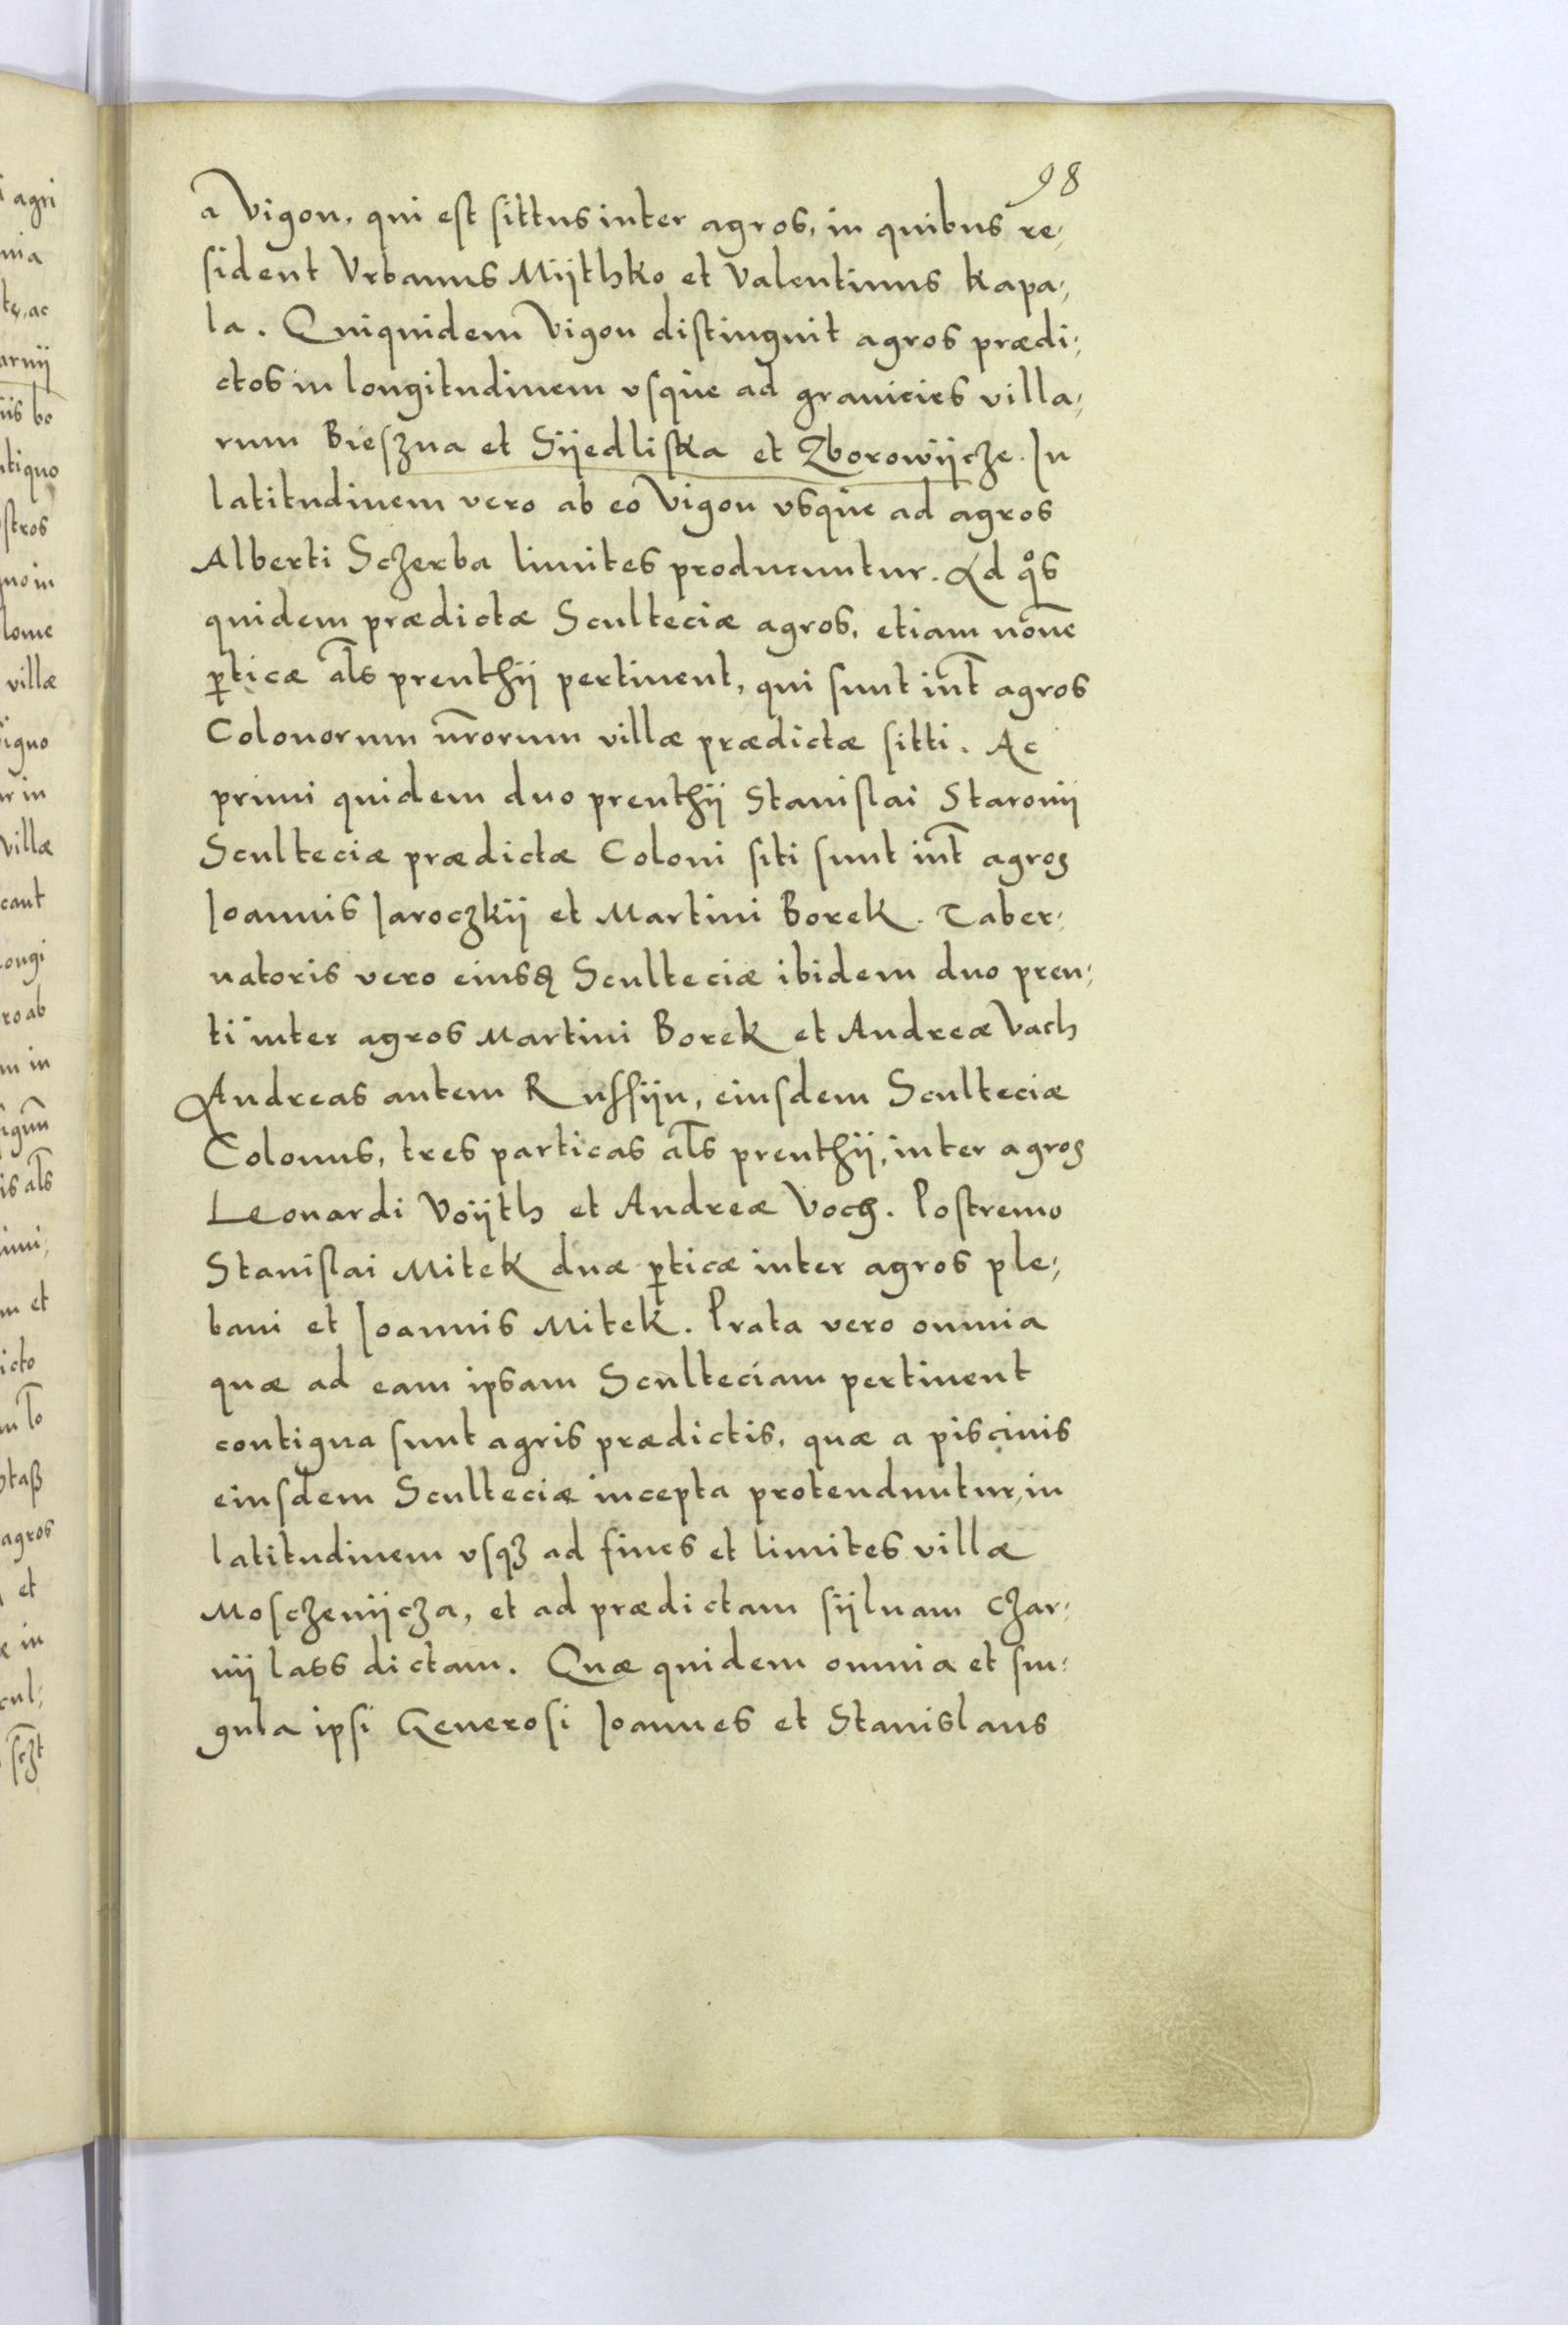 98
a Vigon, qui est sittus inter agros, in quibus re⸗
sident Vrbanus Mijthko et Valentinus Kapa⸗
la. Quiquidem Vigon distinguit agros prædi⸗
ctos in longitudinem vsque ad granicies villa⸗
rum Bieszna et Sijedliska et Zborowijcze. In
latitudinem vero ab eo Vigon vsque ad agros
Alberti Sczerba limites producuntur. Ad qͦs
quidem prædictæ Sculteciæ agros, etiam nōnē
ꝑticæ al̃s prenthij pertinent, qui sunt int̃ agros
Colonorum nr̃orum villæ prædictæ sitti. Ac
primi quidem duo prenthij Stanislai Staronij
Scultecie prædictæ Coloni siti sunt int̃ agros
Ioannis Iaroczkij et Martini Borek. Taber⸗
natoris vero eiusd̃ Scultecie ibidem duo pren⸗
ti inter agros Martini Borek et Andreæ Vach
Andreas autem Russijn, eiusdem Scultecie
Colonus, tres particas al̃s prenthij, inter agros
Leonardi Voijth et Andreæ Voch. Postremo
Stanislai Mitek duæ ꝑticæ inter agros ple⸗
bani et Ioannis Mitek. Prata vero omnia
quæ ad eam ipsam Sculteciam pertinent
contigua sunt agris prædictis, quæ a piscinis
eiusdem Scultecie incepta protenduntur, in
latitudinem vsqꝫ ad fines et limites villæ
Mosczenijcza, et ad prædictam sijluam Czar⸗
nij lass dictam. Quæ quidem omnia et sin⸗
gula ipsi Generosi Ioannes et Stanislaus